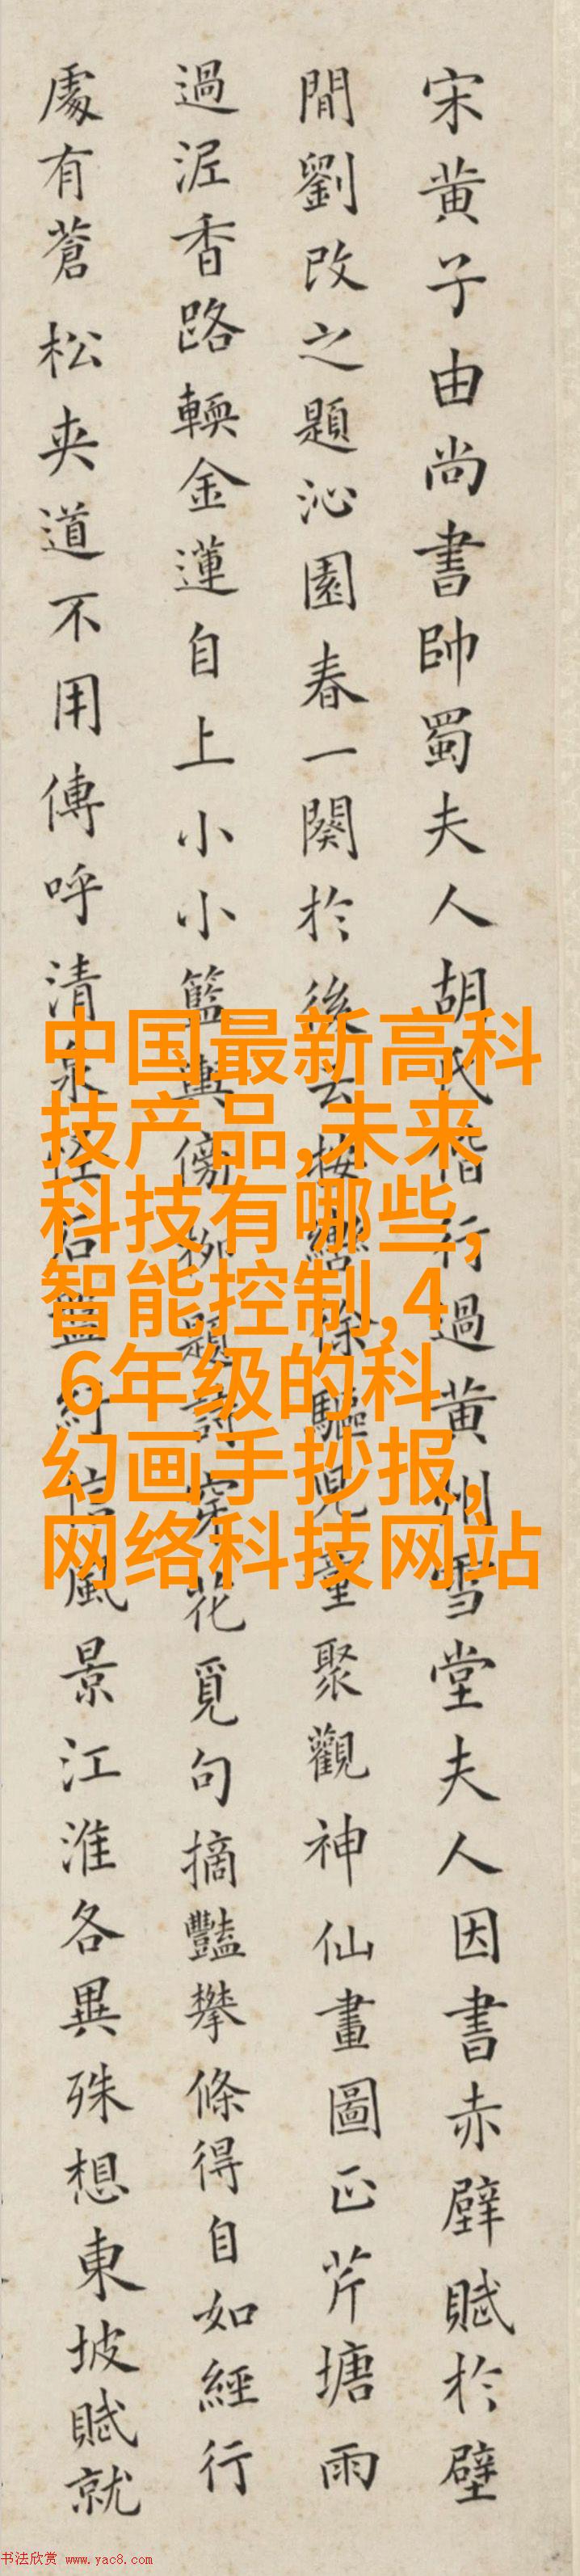 宋黄子由尚書帥蜀夫人胡氏偕行過黄州雪堂夫人因書赤壁賦於壁
間劉改之題沁園春一闋於後云按轡徐驅兒童聚觀神仙畫圖正芹塘雨
過泥香路輭金蓮自上小小籃輿傍柳題詩穿花覓句摘豔攀條得自如經行
處有蒼松夾道不用傳呼清泉怪石盤紆信風景江淮各異殊想東坡賦就
中国最新高科
技产品,未来
科技有哪些,
智能控制,4
6年级的科
幻画手抄报,
网络科技网站
书法欣赏 www.yac8.com